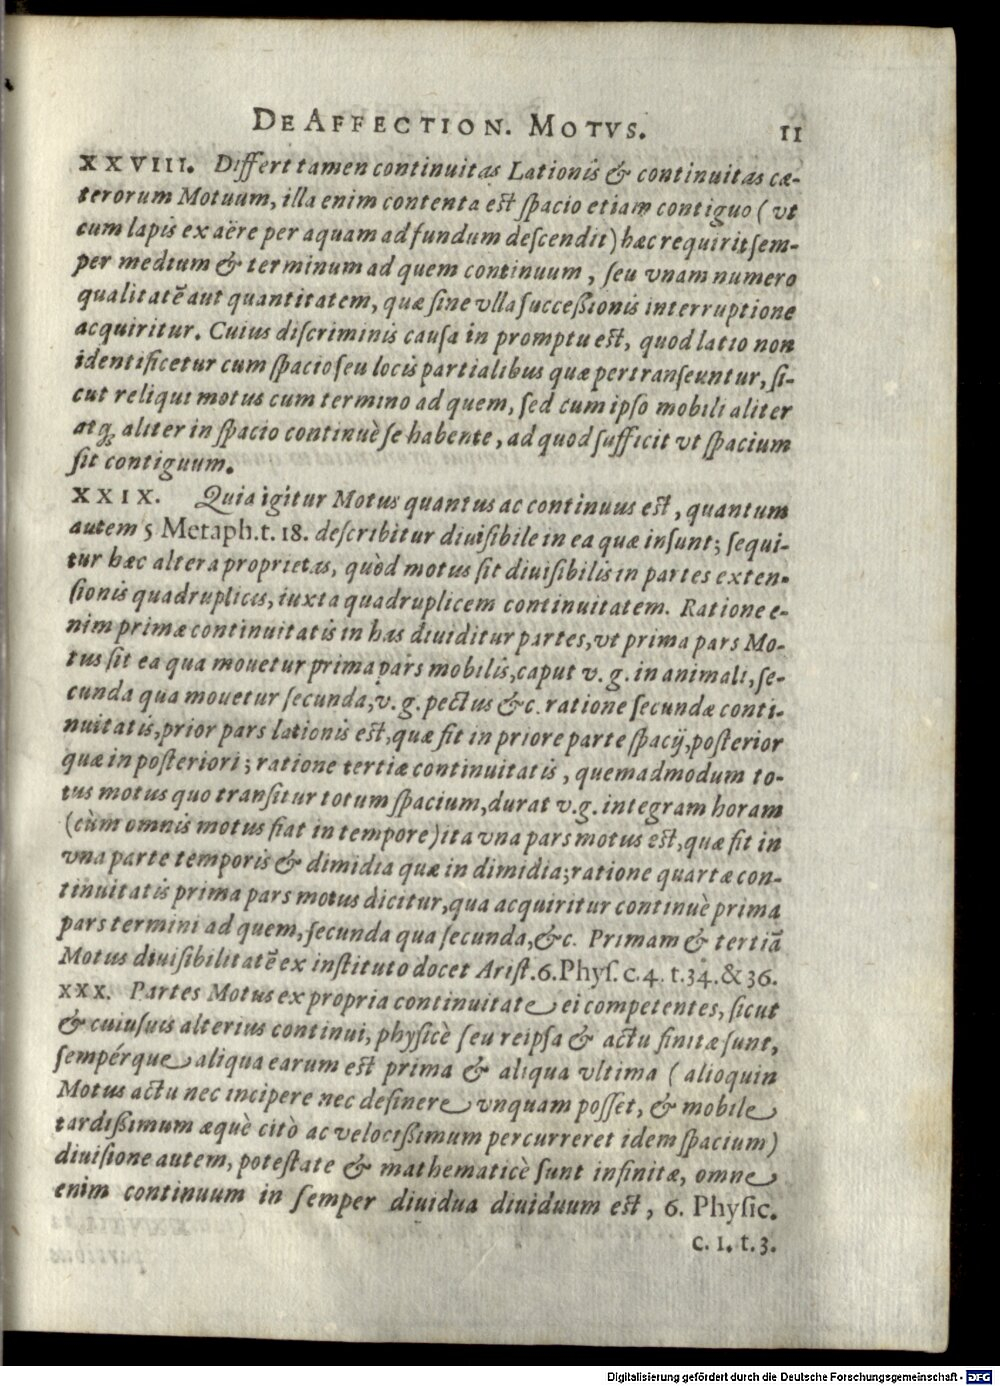 DE AFFECTION. MOTVS. 11
XXVIII. Differt tamen continuitas Lationis & continuitas cæ-
terorum Motuum, illa enim contenta est spacio etiam contiguo (vt
cum lapis ex aëre per aquam ad fundum descendit) hæc requirit sem-
per medium & terminum ad quem continuum, seu vnam numero
qualitatē aut quantitatem, quæ sine vlla successionis interruptione
acquiritur. Cuius discriminis causa in promptu est, quod latio non
identificetur cum spacio seu locis partialibus quæ pertranseuntur, si-
cut reliqui motus cum termino ad quem, sed cum ipso mobili aliter
atq; aliter in spacio continuè se habente, ad quod sufficit vt spacium
sit contiguum.
XXIX. Quia igitur Motus quantus ac continuus est, quantum
autem 5 Metaph. t. 18. describitur diuisibile in ea quæ insunt; sequi-
tur hæc altera proprietas, quòd motus sit diuisibilis in partes exten-
sionis quadruplicis, iuxta quadruplicem continuitatem. Ratione e-
nim primæ continuitatis in has diuiditur partes, vt prima pars Mo-
tus sit ea qua mouetur prima pars mobilis, caput v. g. in animali, se-
cunda qua mouetur secunda, v. g. pectus &c. ratione secundæ conti-
nuitatis, prior pars lationis est, quæ fit in priore parte spacij, posterior
quæ in posteriori; ratione tertiæ continuitatis, quemadmodum to-
tus motus quo transitur totum spacium, durat v. g. integram horam
(cùm omnis motus fiat in tempore) ita vna pars motus est, quæ fit in
vna parte temporis & dimidia quæ in dimidia; ratione quartæ con-
tinuitatis prima pars motus dicitur, qua acquiritur continuè prima
pars termini ad quem, secunda qua secunda, &c. Primam & tertiā
Motus diuisibilitatē ex instituto docet Arist. 6. Phys. c. 4. t. 34. & 36.
XXX. Partes Motus ex propria continuitate ei competentes, sicut
& cuiusuis alterius continui, physicè seu reipsa & actu finitæ sunt,
sempérque aliqua earum est prima & aliqua vltima (alioquin
Motus actu nec incipere nec desinere vnquam posset, & mobile
tardissimum æquè citò ac velocissimum percurreret idem spacium)
diuisione autem, potestate & mathematicè sunt infinitæ, omne
enim continuum in semper diuidua diuiduum est, 6. Physic.
c. 1. t. 3.
Digitalisierung gefördert durch die Deutsche Forschungsgemeinschaft - DFG